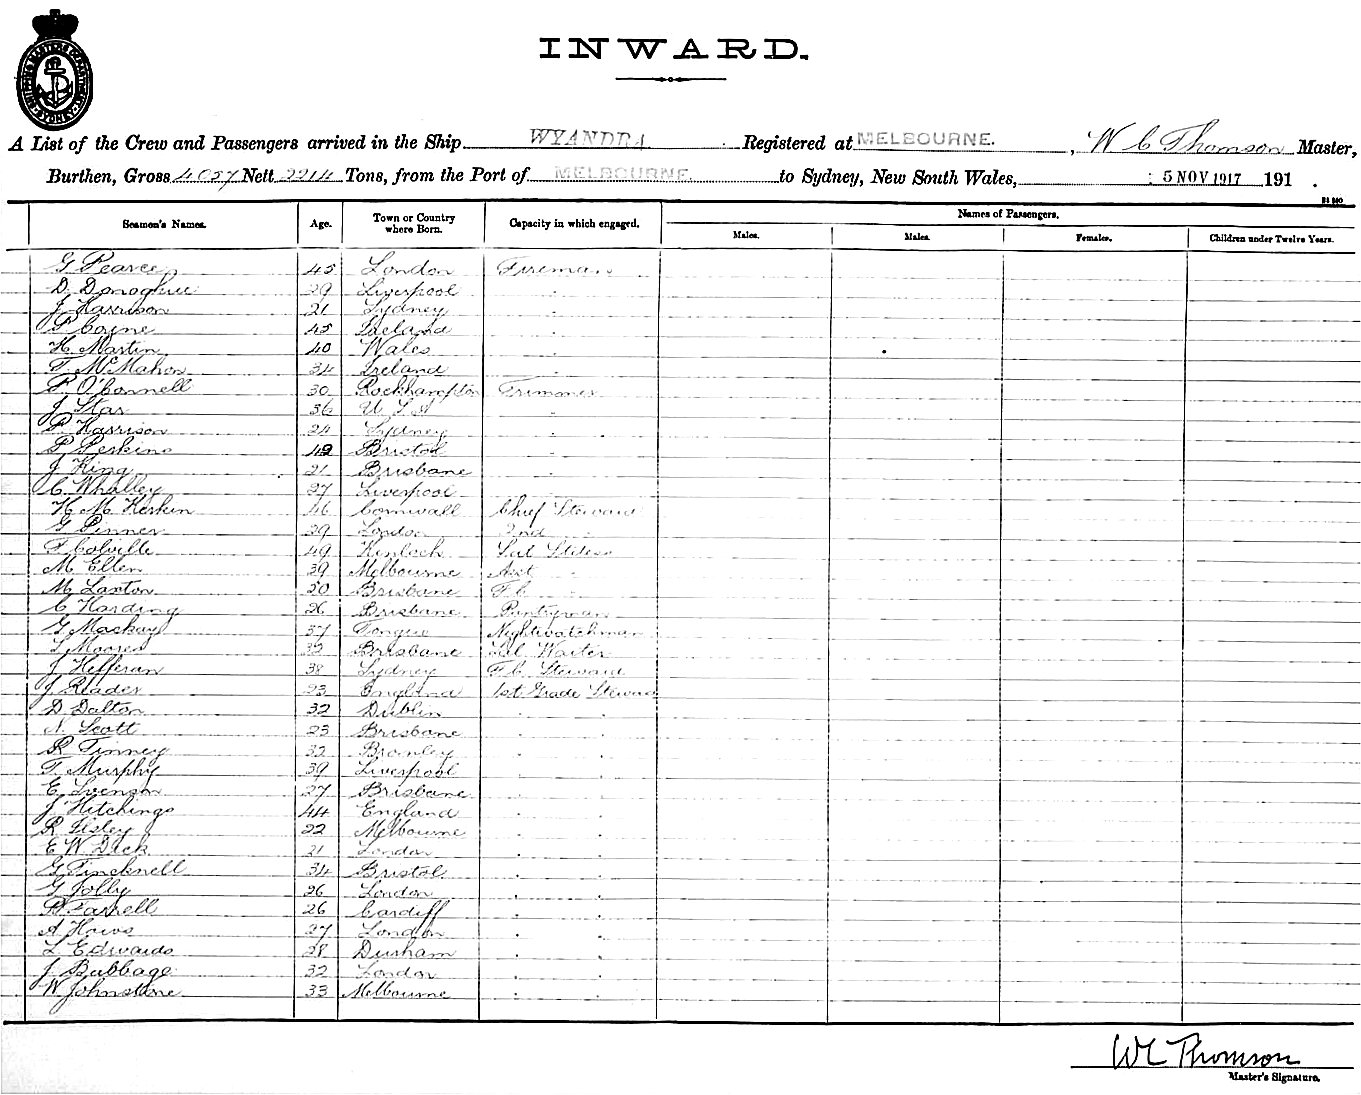 INWARD.
A List of the Crew and Passengers arrived in the Ship WYANDRA Registered at MELBOURNE. , W C Thomson Master,
Burthen, Gross 4057 Nett 2214 Tons, from the Port of MELBOURNE. to Sydney, New South Wales, 5 NOV 1917 191 .
Seamen's Names. Age. Town or Country where Born. Capacity in which engaged. Names of Passengers.
Males. Males. Females. Children under Twelve Years.
G Pearce 45 London Fireman
D. Donoghue 29 Liverpool "
J Harrison 21 Sydney "
P Coyne 45 Ireland "
H. Martin 40 Wales "
T. McMahon 34 Ireland "
P. O'Connell 30 Rockhampton Trimmer
J Star 36 U S A "
P. Harrison 24 Sydney "
P Perkins 49 Bristol "
J King 21 Brisbane "
C. Whalley 27 Liverpool "
H M Kerkin 46 Cornwall Chief Steward
G Pinner 29 London 2nd "
F Colville 49 Kinloch
M Ellen 39 Melbourne Asst "
M. Laxton 50 Brisbane F.C. "
C Harding 26 Brisbane Pantryman
G Mackay 57 Tongue Nightwatchman
L Moores 32 Brisbane Waiter
J Hefferan 38 Sydney F.C. Steward
J. Reader 23 England 1st Grade Steward
D Dalton 32 Dublin " "
N. Scott 23 Brisbane " "
R Tinney 32 Bromley " "
T. Murphy 39 Liverpool " "
E Svenson 27 Brisbane " "
J Hitchings 44 England " "
R Ilsley 22 Melbourne " "
E W Dick 21 London " "
G Tincknell 34 Bristol " "
G Jolly 26 London " "
P Farrell 26 Cardiff " "
A Haws 27 London " "
L Edwards 28 Durham " "
J. Babbage 32 London " "
W Johnstone 33 Melbourne " "
W C Thomson
Master's Signature.